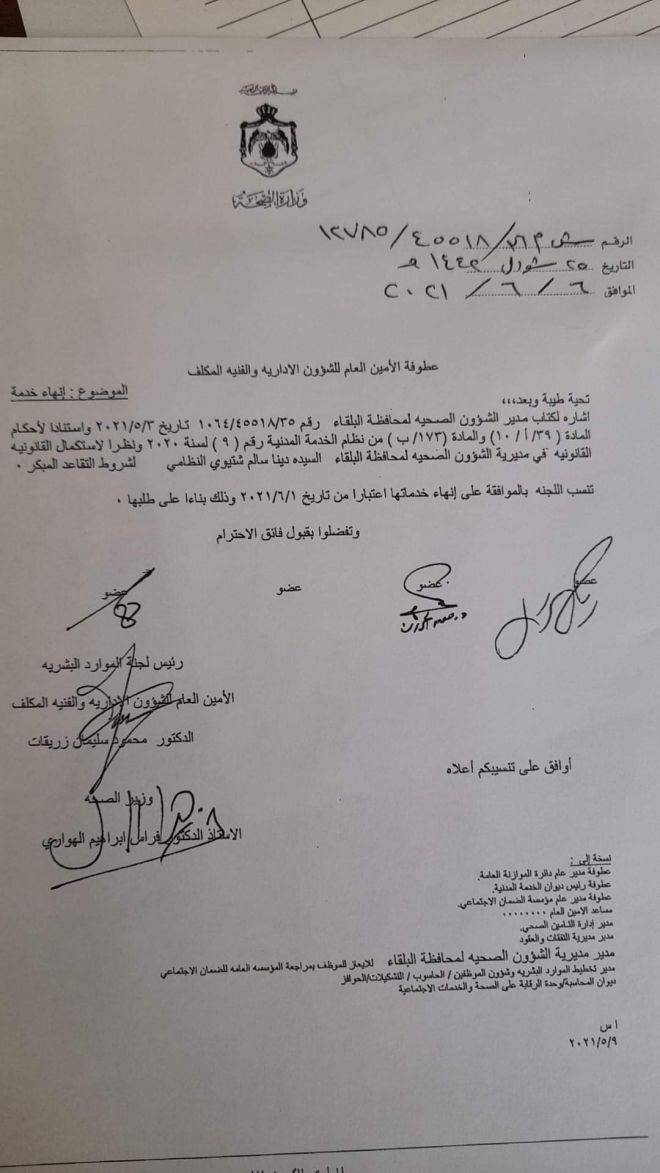 وزارة الصحة
الرقم ش م /٤٥٥١٨/ ١٢٧٨٥
التاريخ ٢٥ شوال ١٤٤٢ هـ
الموافق ٦ / ٦ / ٢٠٢١
عطوفة الأمين العام للشؤون الاداريه والفنيه المكلف
الموضوع : إنهاء خدمة
تحية طيبة وبعد،،،،
اشاره لكتاب مدير الشؤون الصحيه لمحافظة البلقاء رقم ١٠٦٤/٤٥٥١٨/٣٥ تاريخ ٢٠٢١/٥/٣ واستنادا لأحكام
المادة ( ٣٩/ أ / ١٠) والمادة (١٧٣/ ب ) من نظام الخدمة المدنية رقم ( ٩ ) لسنة ٢٠٢٠ ونظرا لاستكمال القانونيه
القانونيه في مديرية الشؤون الصحيه لمحافظة البلقاء السيده دينا سالم شتيوي النظامي لشروط التقاعد المبكر ٠
تنسب اللجنه بالموافقة على إنهاء خدماتها اعتبارا من تاريخ ٢٠٢١/٦/١ وذلك بناءا على طلبها ٠
وتفضلوا بقبول فائق الاحترام
عضو عضو عضو عضو
رئيس لجنة الموارد البشريه
الأمين العام للشؤون الاداريه والفنيه المكلف
الدكتور محمود سليمان زريقات
أوافق على تنسيبكم أعلاه
وزير الصحه
الاستاذ الدكتور فراس ابراهيم الهواري
نسخة إلى :
عطوفة مدير عام دائرة الموازنة العامة.
عطوفة رئيس ديوان الخدمة المدنية.
عطوفة مدير عام مؤسسة الضمان الاجتماعي.
مساعد الامين العام ٠٠٠٠٠٠٠٠
مدير إدارة التامين الصحي.
مدير مديرية النفقات والعقود
مدير مديرية الشؤون الصحيه لمحافظة البلقاء للايعاز للموظف بمراجعة المؤسسه العامه للضمان الاجتماعي
مدير تخطيط الموارد البشريه وشؤون الموظفين / الحاسوب / التشكيلات/الحوافز
ديوان المحاسبة/وحدة الرقابة على الصحة والخدمات الاجتماعية
ا س
٢٠٢١/٥/٩